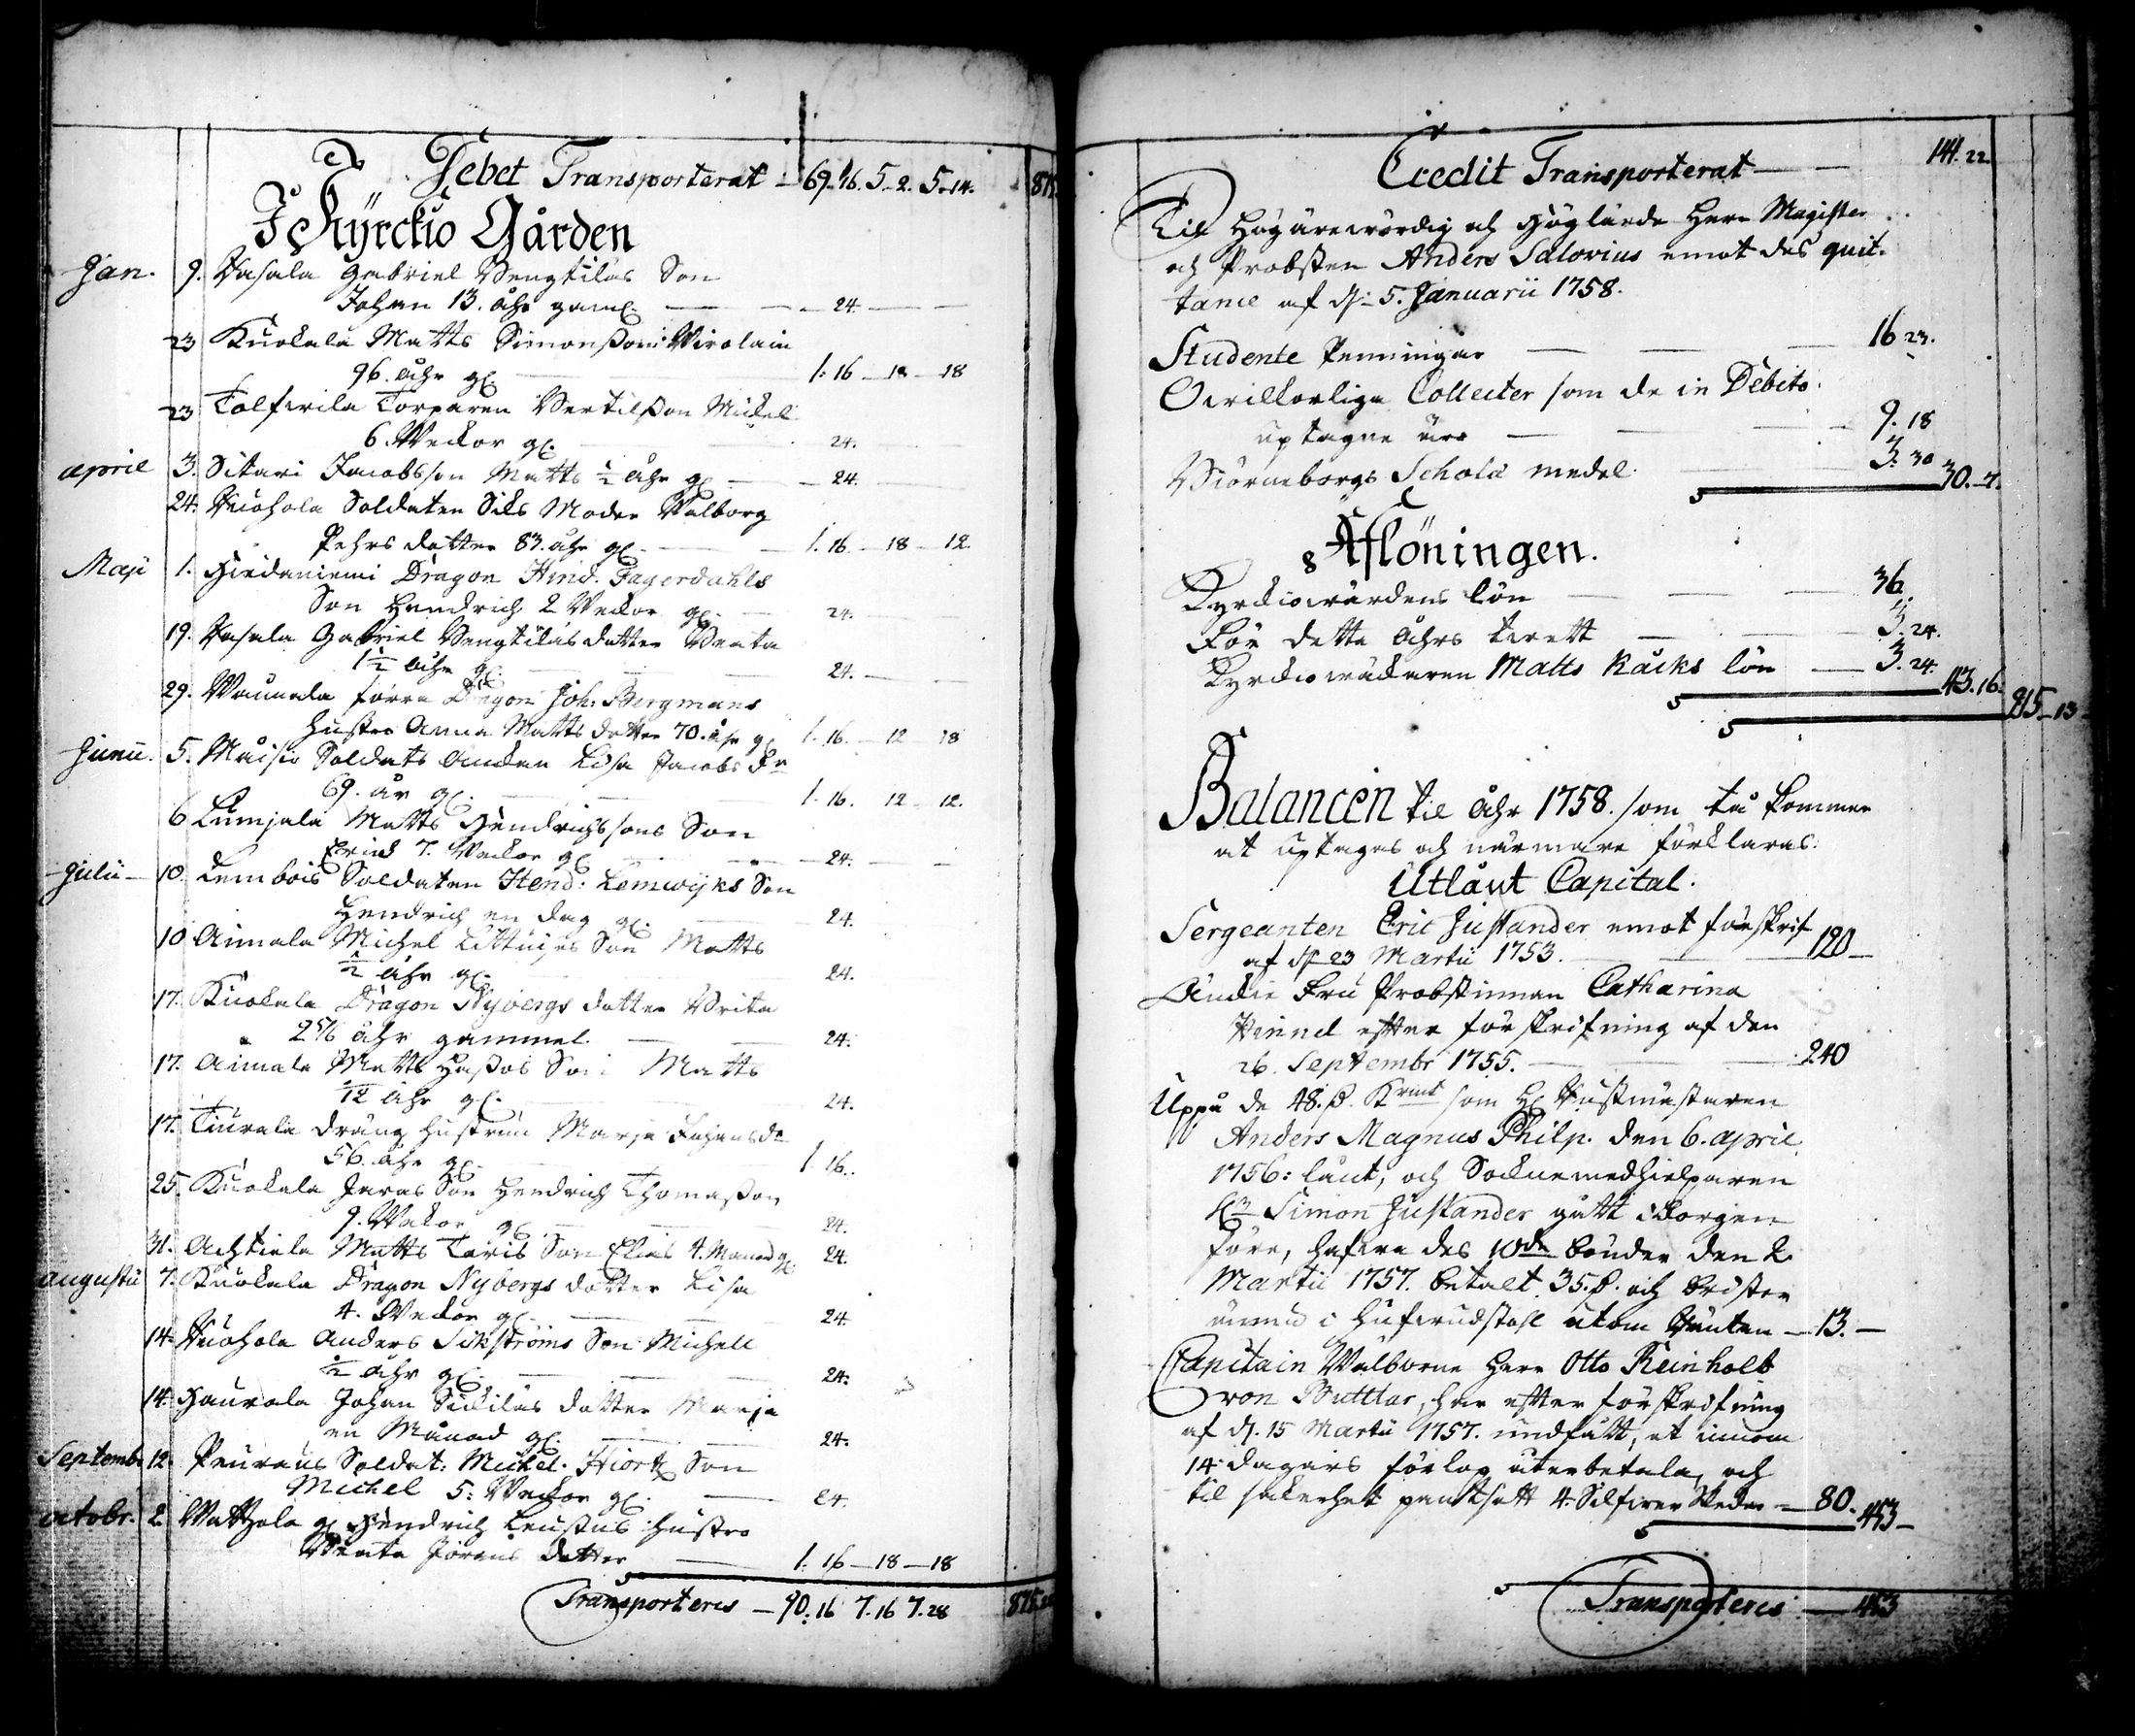 Debet Transporterat — 69. 16. 5. 2. 5. 14. 875
I Kÿrckio Gården
Jan. 9. Vasala Gabriel Bengtilas Son
Johan 13. åhr gaml. — — 24. —
23 Kuokala Matts Simonsson Wirolain
96. åhr gl. — 1. 16 — 18 — 18
23 Torparen Bertilsson Michel
6. Weckor gl. — 24.
april 3. Sikari Jacobsson Matts ½ åhr gl. — 24.
24. Vuohola Soldaten Siks Moder Valborg
Pehrs dotter 83. åhr gl. — 1. 16. — 18 — 12.
Maji 1. Hiedaniemi Dragon Hind. Fagerdahls
Son Hendrich 2 Weckor gl. — 24.
19. Vasala Gabriel Bengtilas dotter Beata
1½ åhr gl. — 24. —
29. förra Dragon Joh: Bergmans
Hustro Anna Matts dotter 70. åhr gl. 1. 16. — 12 — 18
Junii. 5. Maisio Soldats Änckan Lisa Jacobs Dr
69. år gl. — 1. 16. 12 — 12.
6 Lumjala Matts Hendrichssons Son
Erick 7. Weckor gl. — 24. —
Julii — 10. Lembois Soldaten Hend: Lemwijks Son
Hendrich en dag gl. — 24.
10 Aimala Michel Son Matts
½ åhr gl. — 24.
17. Kuokala Dragon Nybergs dotter Brita
2 5/6 åhr gammel. — 24.
17. Aimala Matts Son Matts
1/12 åhr gl. — 24.
17. Tiurala dräng hustrun Marja Johansdr
56. åhr gl. — 1. 16.
25. Kuokala Jaras Son Hendrich Thomasson
9. Weckor gl. — 24.
31. Achtiala Matts Taris Son Elias 4. Månad gl. 24.
augusti 7. Kuokala Dragon Nybergs dotter Lisa
4. Weckor gl. — 24.
14. Vuohola Anders Sikströms Son Michell
½ åhr gl. — 24.
14. Haurala Johan Sickilas dotter Marja
en Månad gl. — 24.
Septemb. 12. Peuraus Soldat: Michel. Hiortz Son
Michel 5: Weckor gl. — 24.
octobr. 2. gl. Hendrich Hustro
Beata Jörans dotter — 1. 16 — 18 — 18
Transporteres — 90. 16 7. 16 7. 28 875.
Credit Transporterat — 141. 22
Til Högärewördig och Höglärde Herr Magister
och Probsten Anders Salovius emot des quit-
tance af d. 5. Januarii 1758.
Studente Penningar — 16 23.
Owilkorliga Collecter som de in Debito
uptagne äro — 9. 18
Biörneborgs Schola medel — 3. 30 30. 7.
Aflöningen.
Kyrckiowärdens lön — 36.
För dette åhrs — 3. 24.
Kyrckiowäckaren Matts Räiks lön — 3. 24. 43. 16. 215 — 13
Balancen til åhr 1758. som tå kommer
at uptagas och närmare förklaras.
Utlånt Capital.
Sergeanten Eric Justander emot förskrif
af d. 23 Martii 1753. — 120 —
Änckie Fru Probstinnan Catharina
efter förskrifning af den
26. Septembr 1755. — 240
Uppå de 48. D. Krmt som Hl
Anders Magnus Philp. den 6. april.
1756: länt, och Sockne medhielparen
Hr Simon Justander gått i borgen
före, hafwa des bönder den 2.
Martii 1757. betalt 35. D. och brister
ännu i hufwudstohl utom räntan — 13. —
Capitain Välborne Herr Otto Reinholt
von Buttlar, har efter förskrifning
af d. 15 Martii 1757. undfått, at innom
14 dagars förlop återbetala, och
til säkerhet pantsatt 4. Silfwer Skedar — 80. 453 —
Transporteres — 453